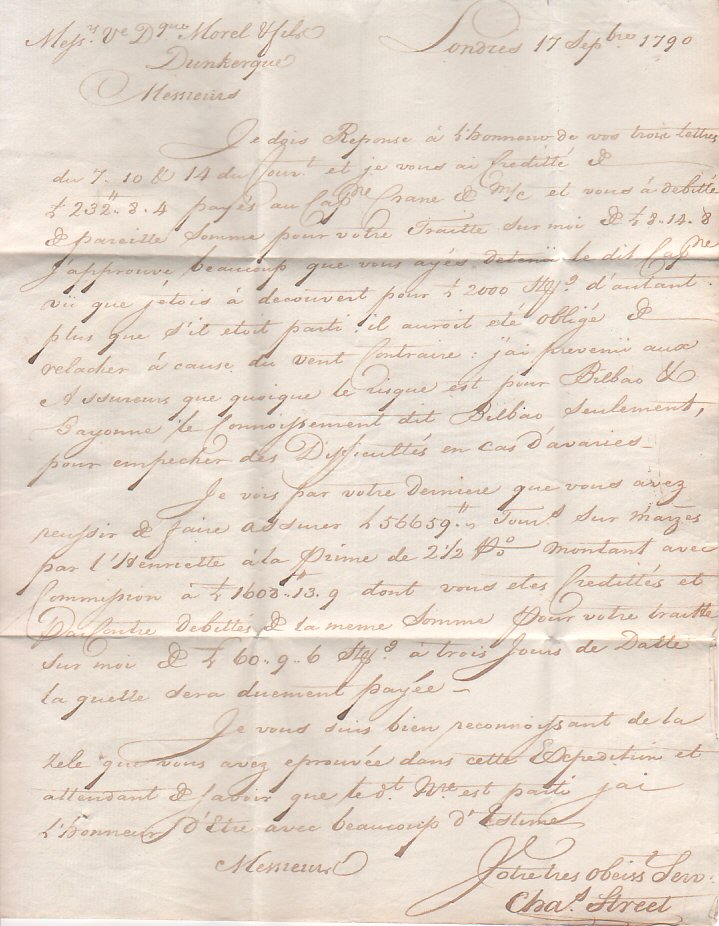 Messrs Ve Dque Morel & fils Londres 17 Sepbre 1790
Dunkerque
Messieurs
Je dois Reponse à L'honneur de vos trois lettres
du 7. 10 & 14 du Court et je vous ai Creditté de
£ 232".. 8.. 4 payés au Capne Crane & et vous à debitté
de pareille Somme pour votre Traitte Sur moi de £ 8.. 14.. 8
J'approuve beaucoup que vous ayés detenü le dit Capne
vü que j'étois à decouvert pour £ 2000 Stg. d'autant
plus que S'il etoit parti il auroit eté obligé de
relacher à cause du vent Contraire: j'ai prevenü aux
Assureurs que quoique le risque est pour Bilbao &
Bayonne le Connoissement dit Bilbao Seulement,
pour empecher des Difficultés en cas d'avaries_
Je vois par votre derniere que vous avez
reussir de faire assurer £ 56659".. Tours Sur
par l'Henriette à la Prime de 2 1/2 P% montant avec
Commission à £ 1608".. 13.. 9 dont vous etes Credittés et
Par Contre debittés de la meme Somme Pour votre traitte
Sur moi de £ 60.. 9.. 6 Stg à trois Jours de Datte
la quelle Sera duement payée_
Je vous suis bien reconnoissant de la
Zele que vous avez eprouvée dans cette Expedition et
attendant de Savoir que le dt Nre est parti jai
L'honneur D'Etre avec beaucoup d'Estime
Messieurs Votre tres obeisst Serv.
Chas. Street